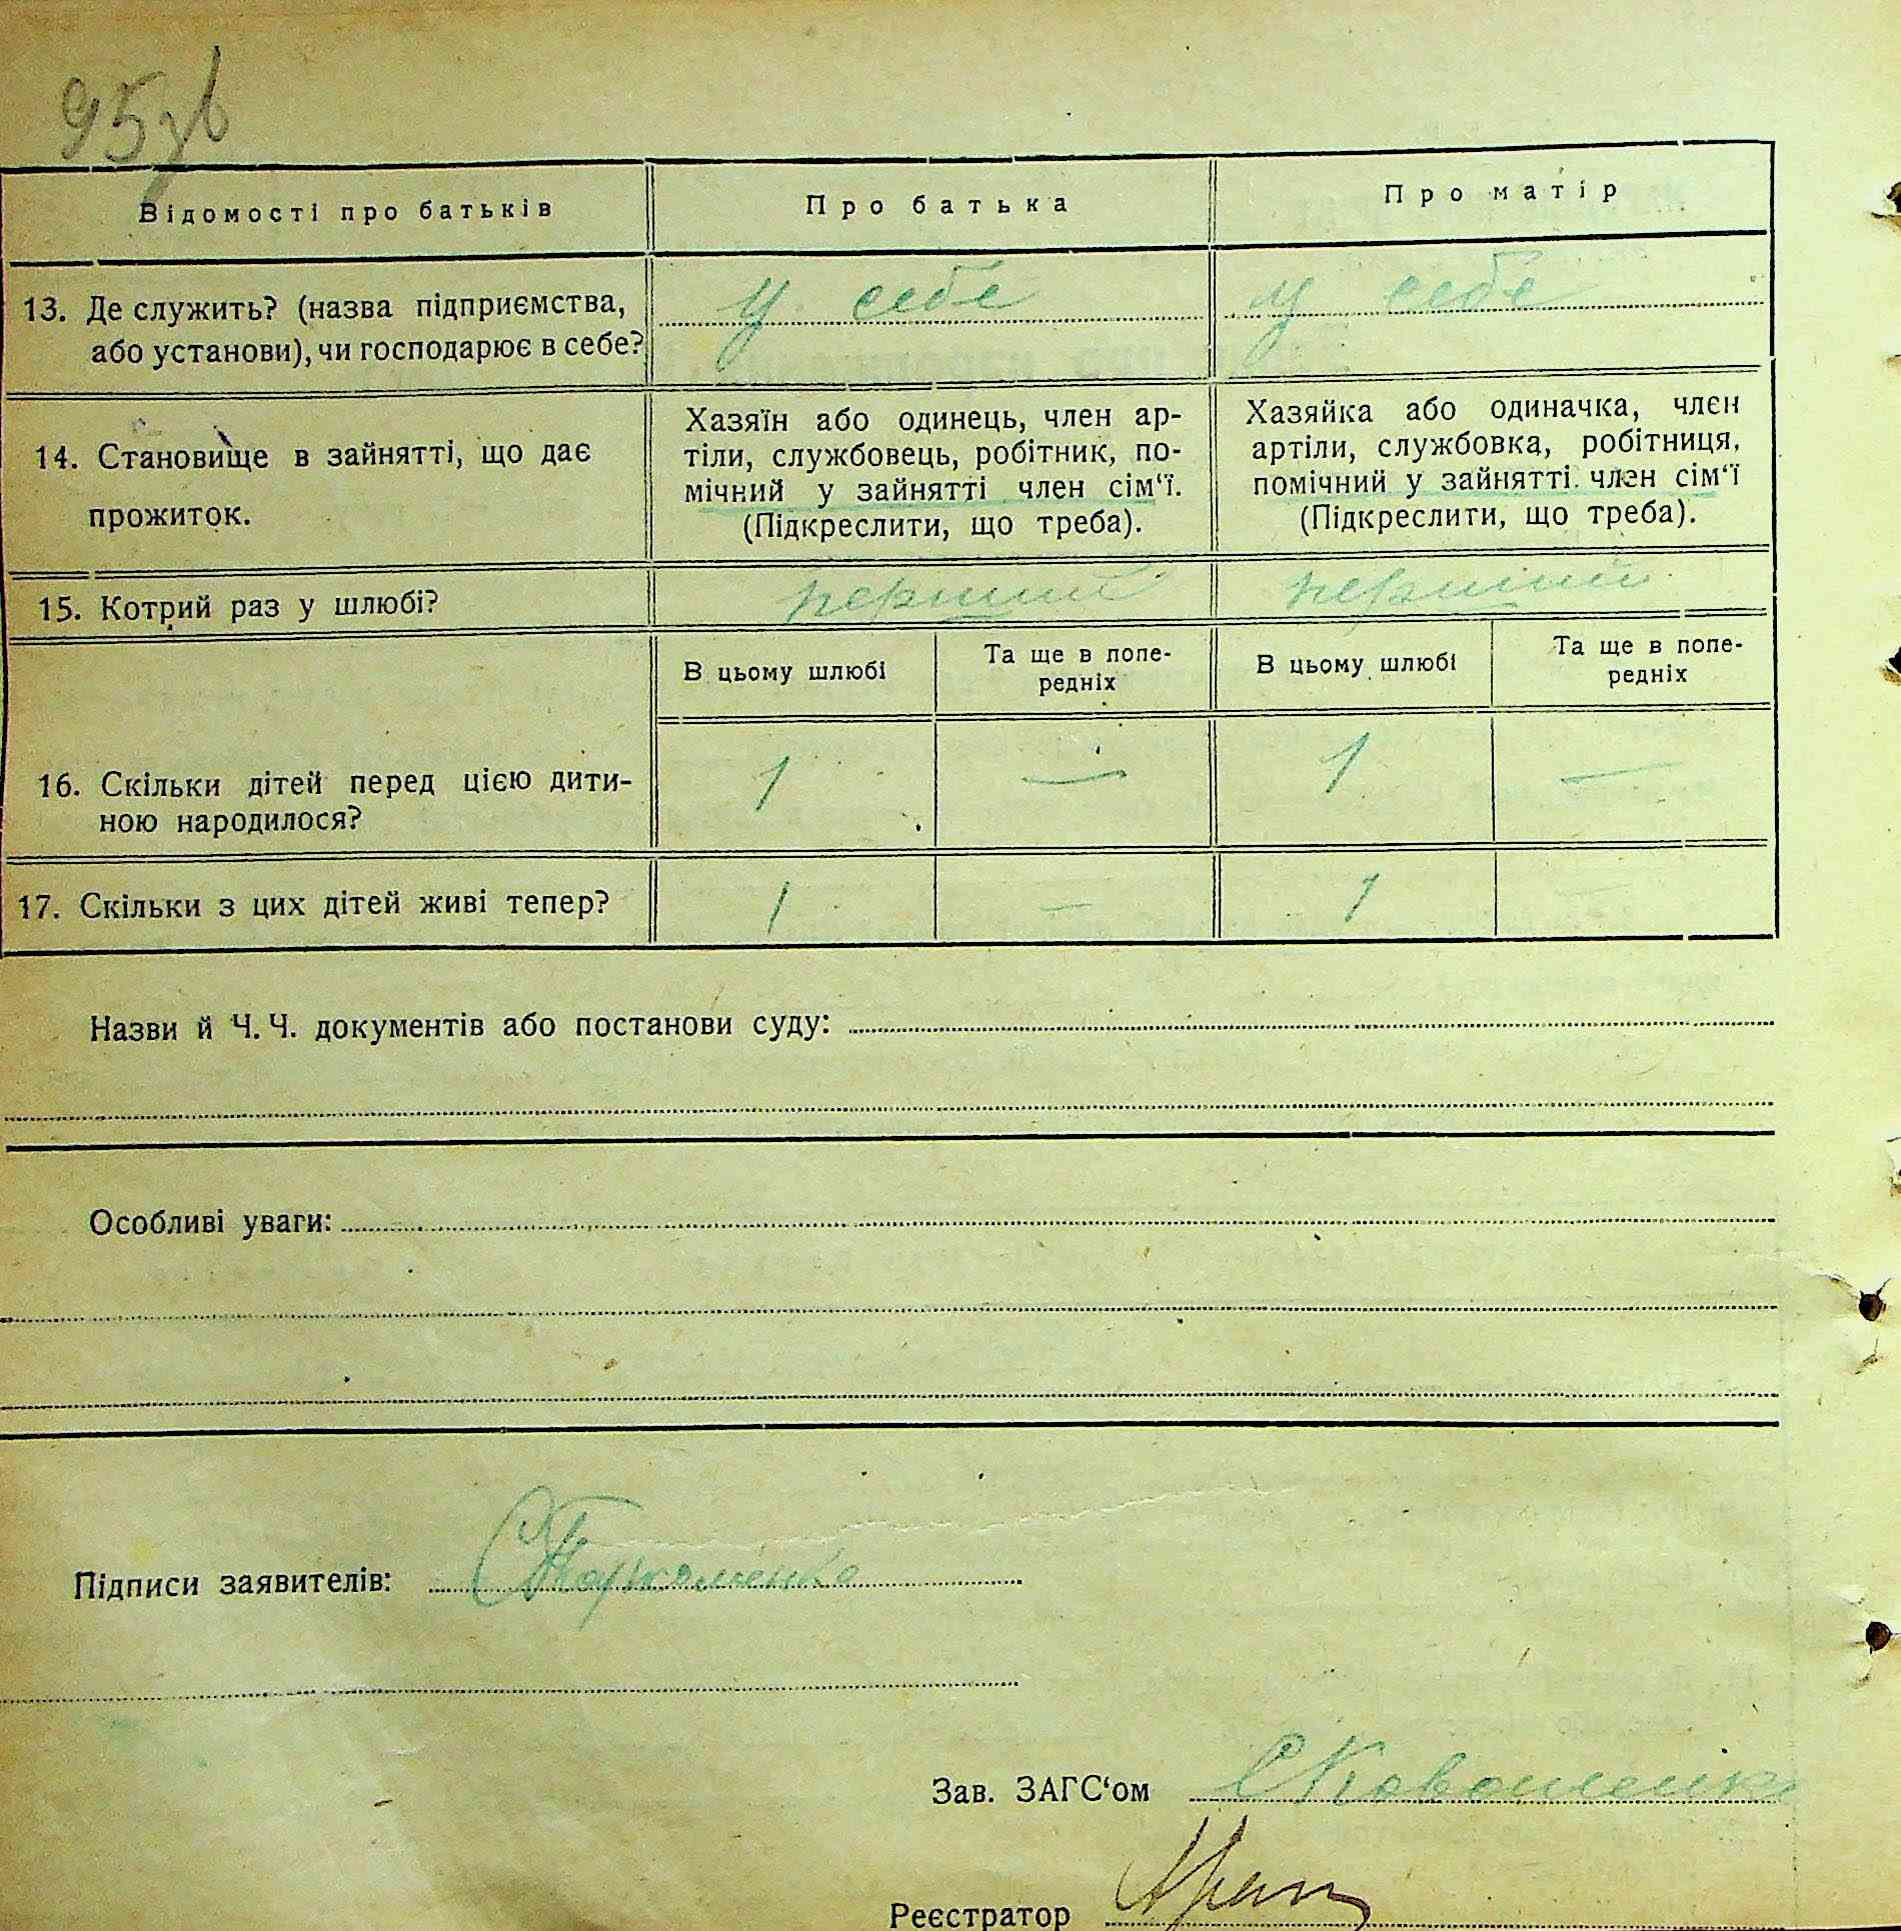 95зв
Відомості про батьків
Про батька
Про матір
13. Де служить? (назва підприємства,
або установи), чи господарює в себе?
у себе
у себе
14. Становище в зайнятті, що дає
прожиток.
Хазяїн або одинець, член ар-
тіли, службовець, робітник, по-
мічний у зайнятті член сім‘ї.
(Підкреслити, що треба).
Хазяйка або одиначка, член
артіли, службовка, робітниця,
помічний у зайнятті член сім‘ї
(Підкреслити, що треба).
15. Котрий раз у шлюбі?
перший
перший
В цьому шлюбі
Та ще в попе-
редніх
В цьому шлюбі
Та ще в попе-
редніх
16. Скільки дітей перед цією дити-
ною народилося?
1 — 1 —
17. Скільки з цих дітей живі тепер?
1 — 1
Назви й Ч. Ч. документів або постанови суду:
Особливі уваги:
Підписи заявителів:
Зав. ЗАГС‘ом
Реєстратор